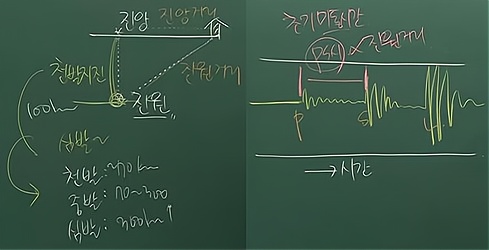 진앙 진앙거리
진원거리
천발지진
100km
진원
심발~
천발 : 70km
중발 : 70~300
심발 : 300km↑
초기미동시간
PS시 ∝ 진원거리
P S L
→ 시간